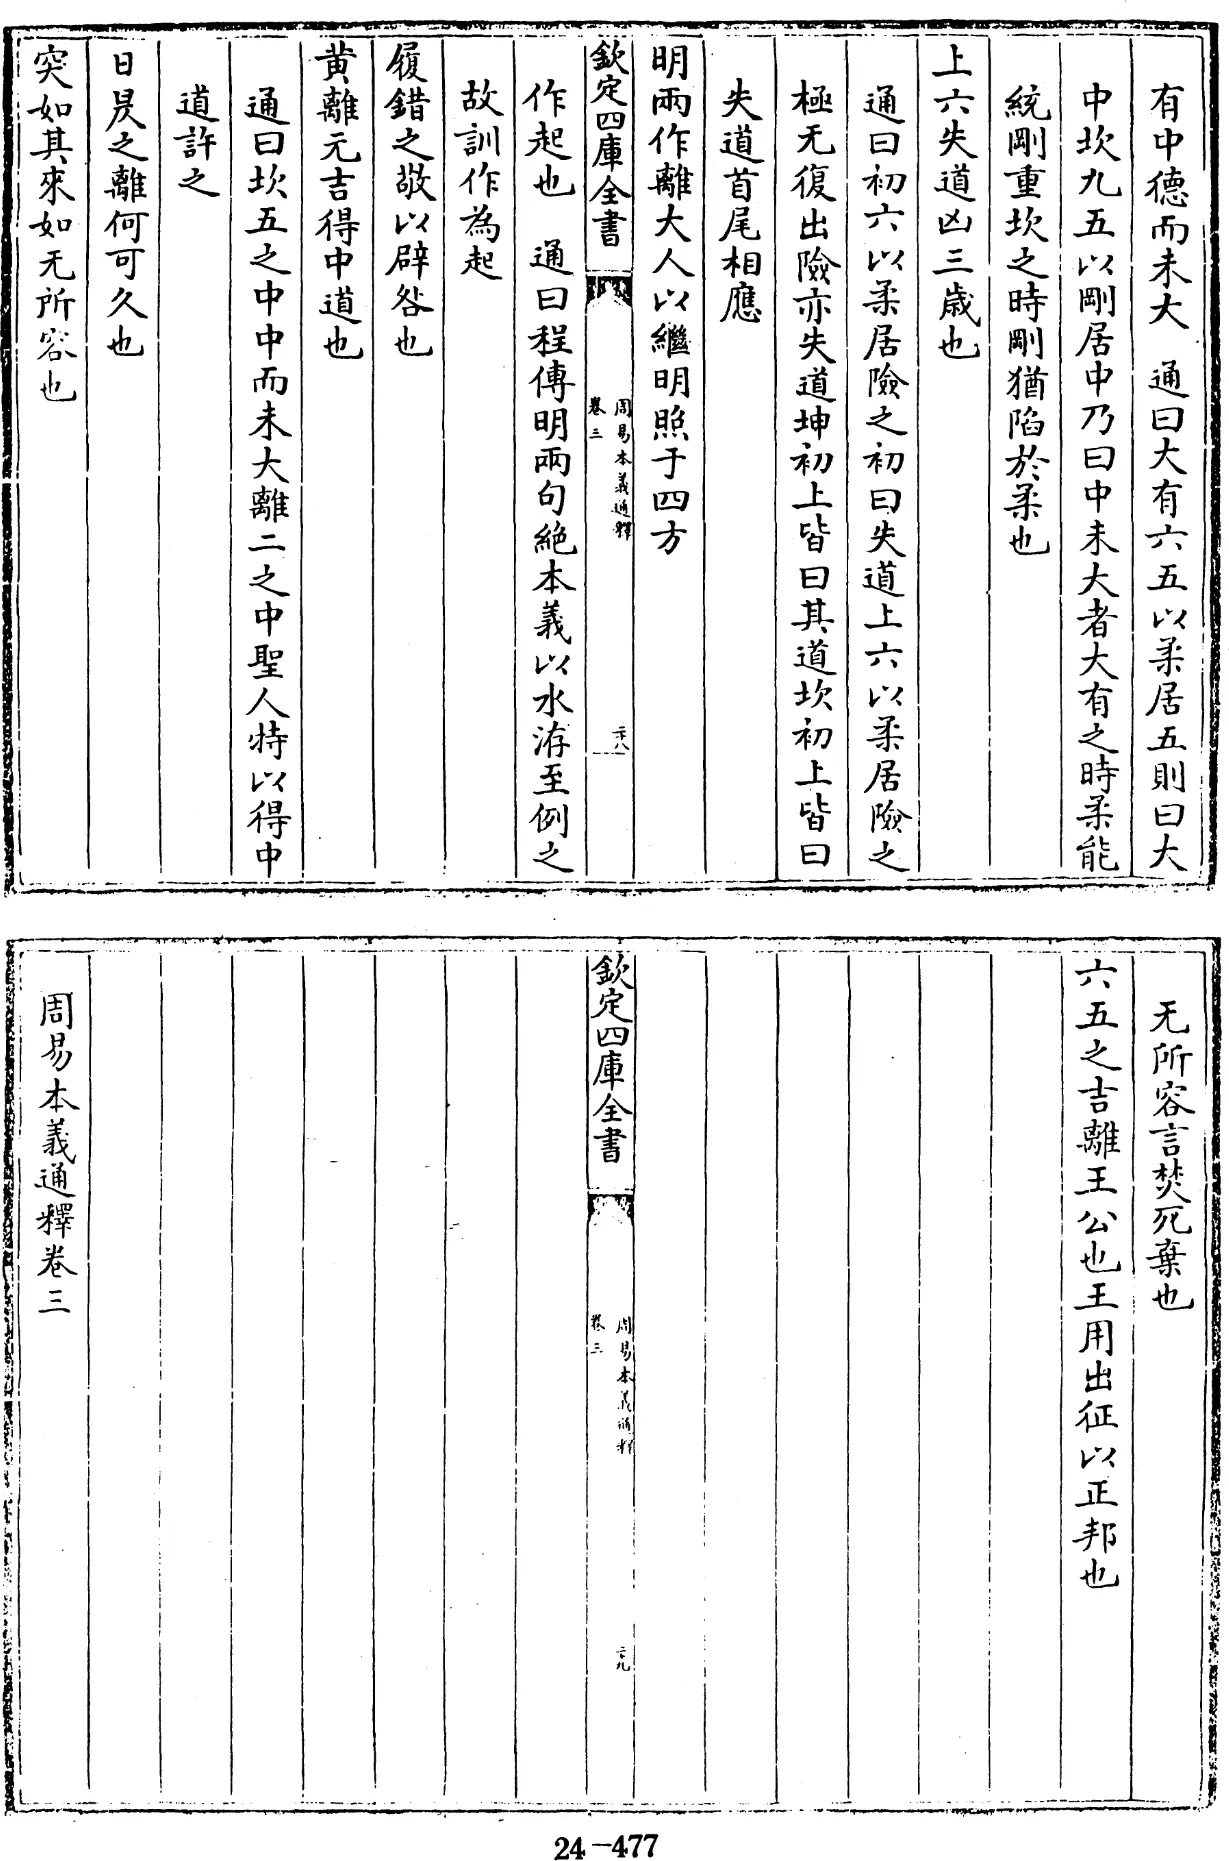 有中德而未大　通曰大有六五以柔居五則曰大
中坎九五以剛居中乃曰中未大者大有之時柔能
統剛重坎之時剛猶陷於柔也
上六失道凶三歲也
通曰初六以柔居險之初曰失道上六以柔居險之
極无復出險亦失道坤初上皆曰其道坎初上皆曰
失道首尾相應
明兩作離大人以繼明照于四方
欽定四庫全書
周易本義通釋
卷三
二十八
作起也　通曰程傳明兩句絶本義以水洊至例之
故訓作為起
履錯之敬以辟咎也
黄離元吉得中道也
通曰坎五之中中而未大離二之中聖人特以得中
道許之
日昃之離何可久也
突如其來如无所容也
无所容言焚死棄也
六五之吉離王公也王用出征以正邦也
欽定四庫全書
周易本義通釋
卷三
二十九
周易本義通釋卷三
24-477